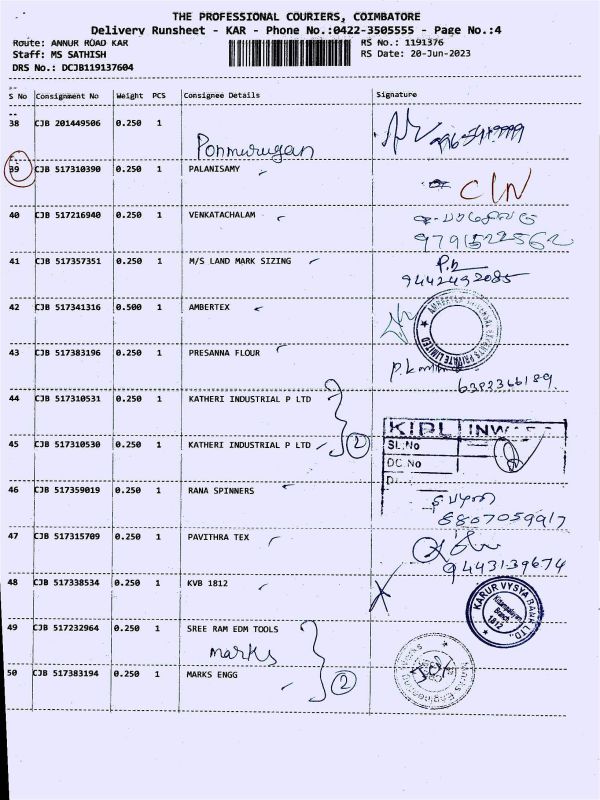 THE PROFESSIONAL COURIERS, COIMBATORE
Delivery Runsheet - KAR - Phone No.:0422-3505555 - Page No.:4
Route: ANNUR ROAD KAR RS No.: 1191376
Staff: MS SATHISH RS Date: 20-Jun-2023
DRS No.: DCJB119137604
S No Consignment No Weight PCS Consignee Details Signature
38 CJB 201449506 0.250 1
Ponmurugan
39 CJB 517310390 0.250 1 PALANISAMY
40 CJB 517216940 0.250 1 VENKATACHALAM
9791522562
41 CJB 517357351 0.250 1 M/S LAND MARK SIZING
9442492085
42 CJB 517341316 0.500 1 AMBERTEX
PRIVATE LIMITED
43 CJB 517383196 0.250 1 PRESANNA FLOUR
6382366189.
44 CJB 517310531 0.250 1 KATHERI INDUSTRIAL P LTD
KIPL
SL.No
45 CJB 517310530 0.250 1 KATHERI INDUSTRIAL P LTD 2
DC.No
46 CJB 517359019 0.250 1 RANA SPINNERS
8807059917
47 CJB 517315709 0.250 1 PAVITHRA TEX
9443139674
48 CJB 517338534 0.250 1 KVB 1812
KARUR VYSYA BANK LTD.,
Branch
1812
49 CJB 517232964 0.250 1 SREE RAM EDM TOOLS
marks
50 CJB 517383194 0.250 1 MARKS ENGG 2